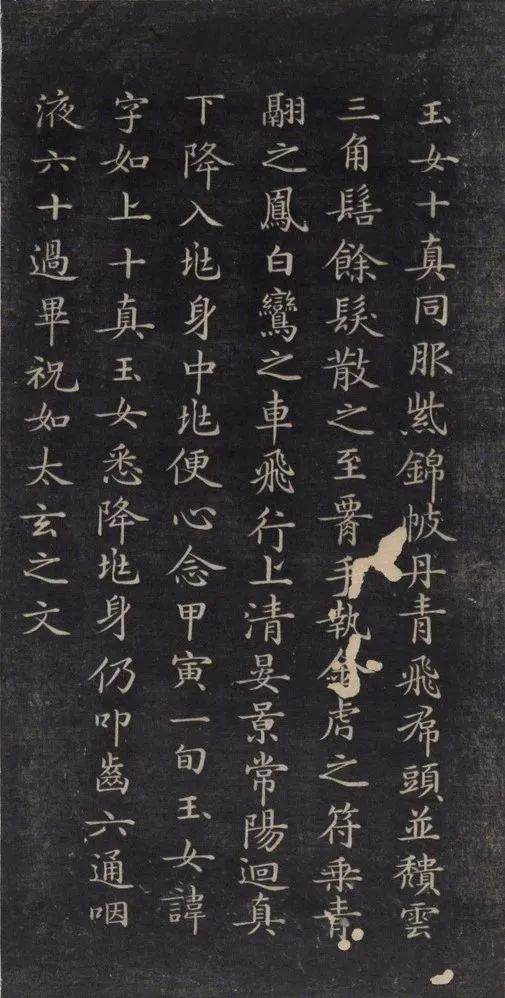 玉女十真同服紫錦帔丹青飛帬頭並穨雲
三角髻餘髮散之至署手執金虎之符乗青
翮之鳳白鸞之車飛行上清晏景常陽迴真
下降入兆身中兆便心念甲寅一旬玉女諱
字如上十真玉女悉降兆身仍叩齒六通咽
液六十過畢祝如太玄之文